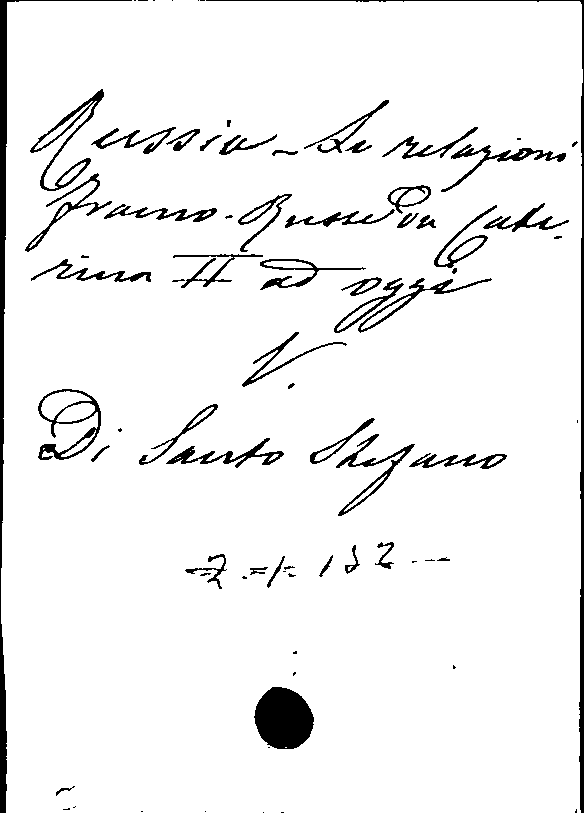 Russia - Le relazioni
Franco-Russe da Cate-
rina II ad oggi
V.
Di Santo Stefano
132